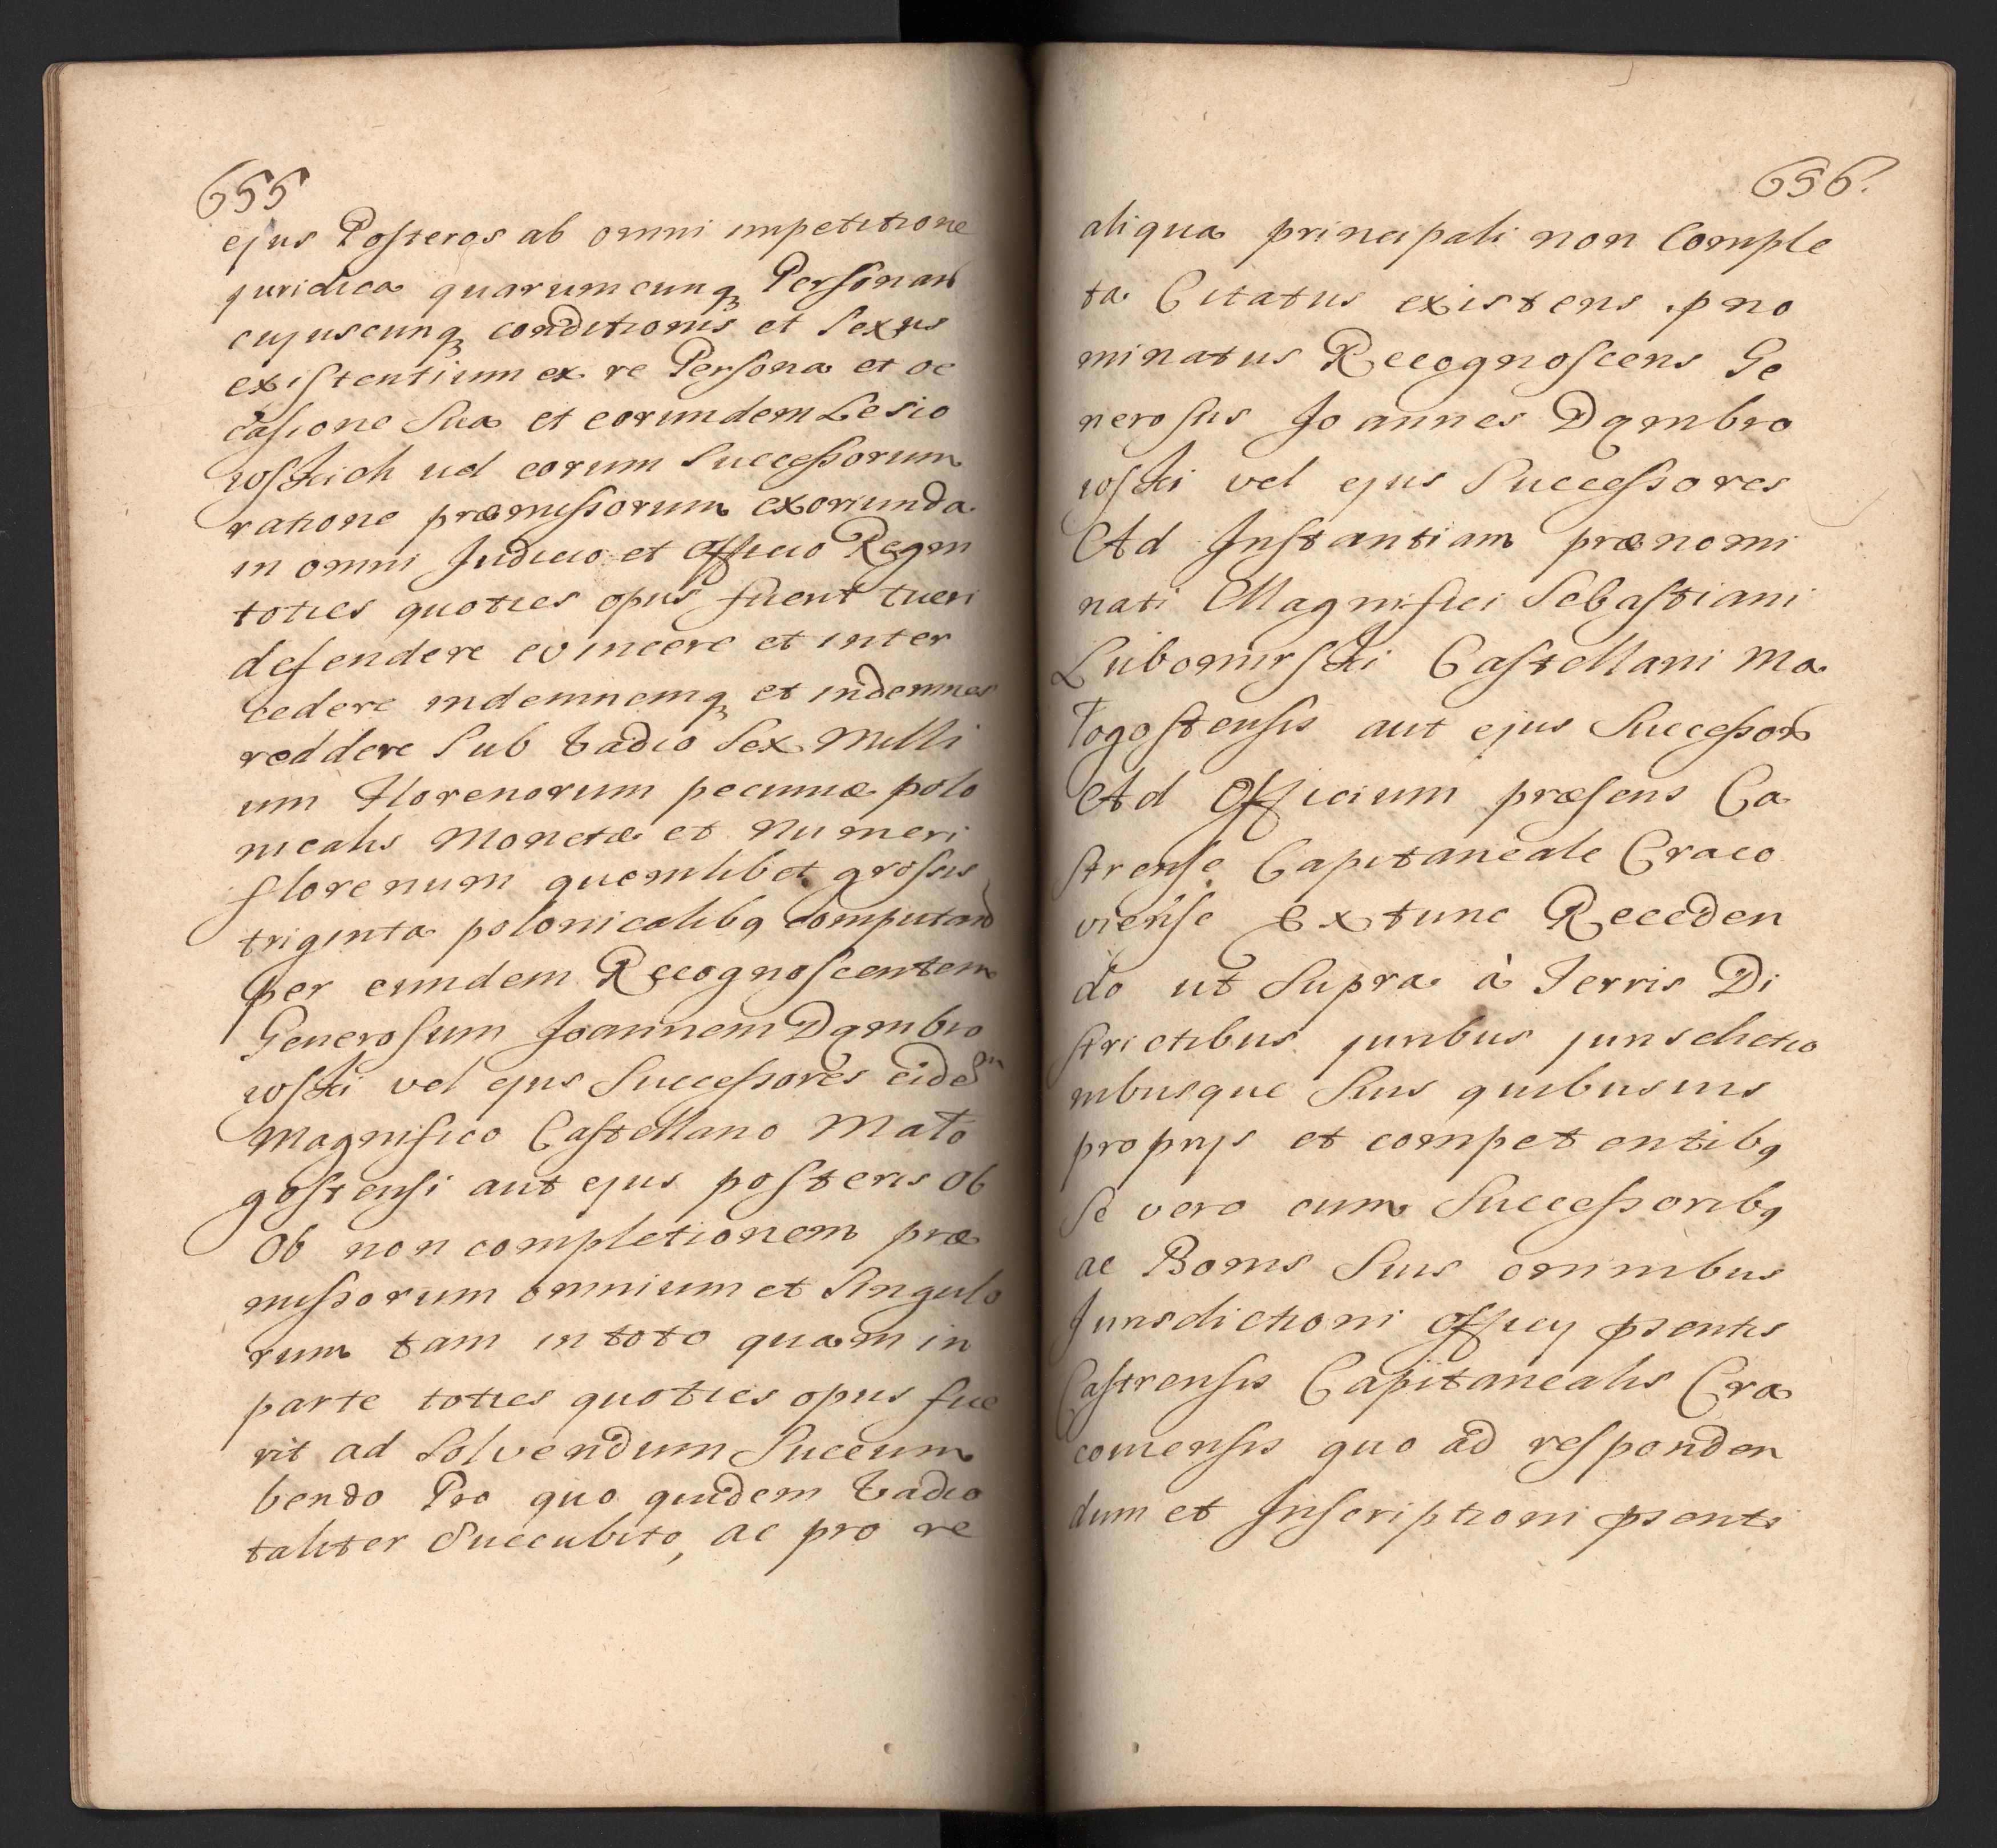 655
ejus Posteros ab omni impetitione
juridica quarumcunq Personar
cujuscunq conditionis et Sexus
existentium ex re Persona et oc
casione Sua et eorundem Lesio
wskich vel eorum Successorum
ratione præmissorum exoriunda
in omni Judicio et Officio Regni
toties quoties opus fuerit tueri
defendere evincere et inter
cedere indemnemq et indemnes
reddere Sub Vadio Sex Milli
um Florenorum pecuniæ polo
nicalis Monetæ et Numeri
florenum quemlibet grossis
triginta polonicalibq computand
per eundem Recognoscentem
Generosum Joannem Dąmbro
wski vel ejus Successores eidem
Magnifico Castellano Mało
gostensi aut ejus posteris Ob
Ob non completionem præ
missorum omnium et Singulo
rum tam in toto quam in
parte toties quoties opus fue
rit ad Solvendum Succum
bendo Pro quo quidem Vadio
taliter Succubito, ac pro re
656.
aliqua principali non Comple
ta Citatus existens pno
minatus Recognoscens Ge
nerosus Joannes Dąmbro
wski vel ejus Successores
Ad Instantiam prænomi
nati Magnifici Sebastiani
Lubomirski Castellani Ma
łogostensis aut ejus Successor
Ad Officium præsens Ca
strense Capitaneale Craco
viense Extunc Receden
do ut Supra à Terris Di
strictibus juribus jurisdictio
nibusque Suis quibusvis
proprijs et competentibq
Se vero cum Successoribq
ac Bonis Suis omnibus
Jurisdictioni Officij psentis
Castrensis Capitanealis Cra
coviensis quo ad responden
dum et Inscriptioni psenti